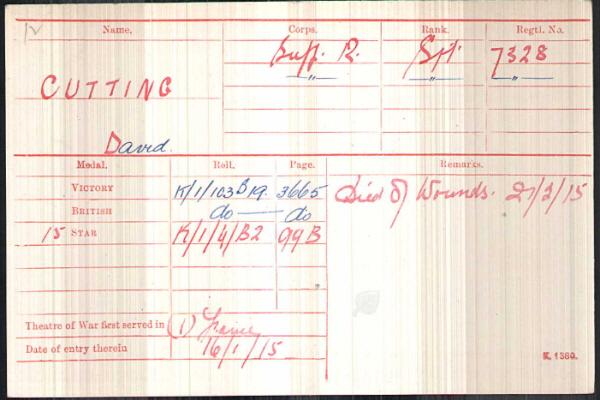 Name. Corps. Rank. Regtl. No.
Suff. R. Sjt. 7328
" " "
CUTTING
David.
Medal. Roll. Page. Remarks.
VICTORY K/1/103 B19 3665 Died of Wounds. 21/2/15
BRITISH do do
15 STAR K/1/4/B2 99B
Theatre of War first served in (1) France
Date of entry therein 16/1/15
K. 1380.